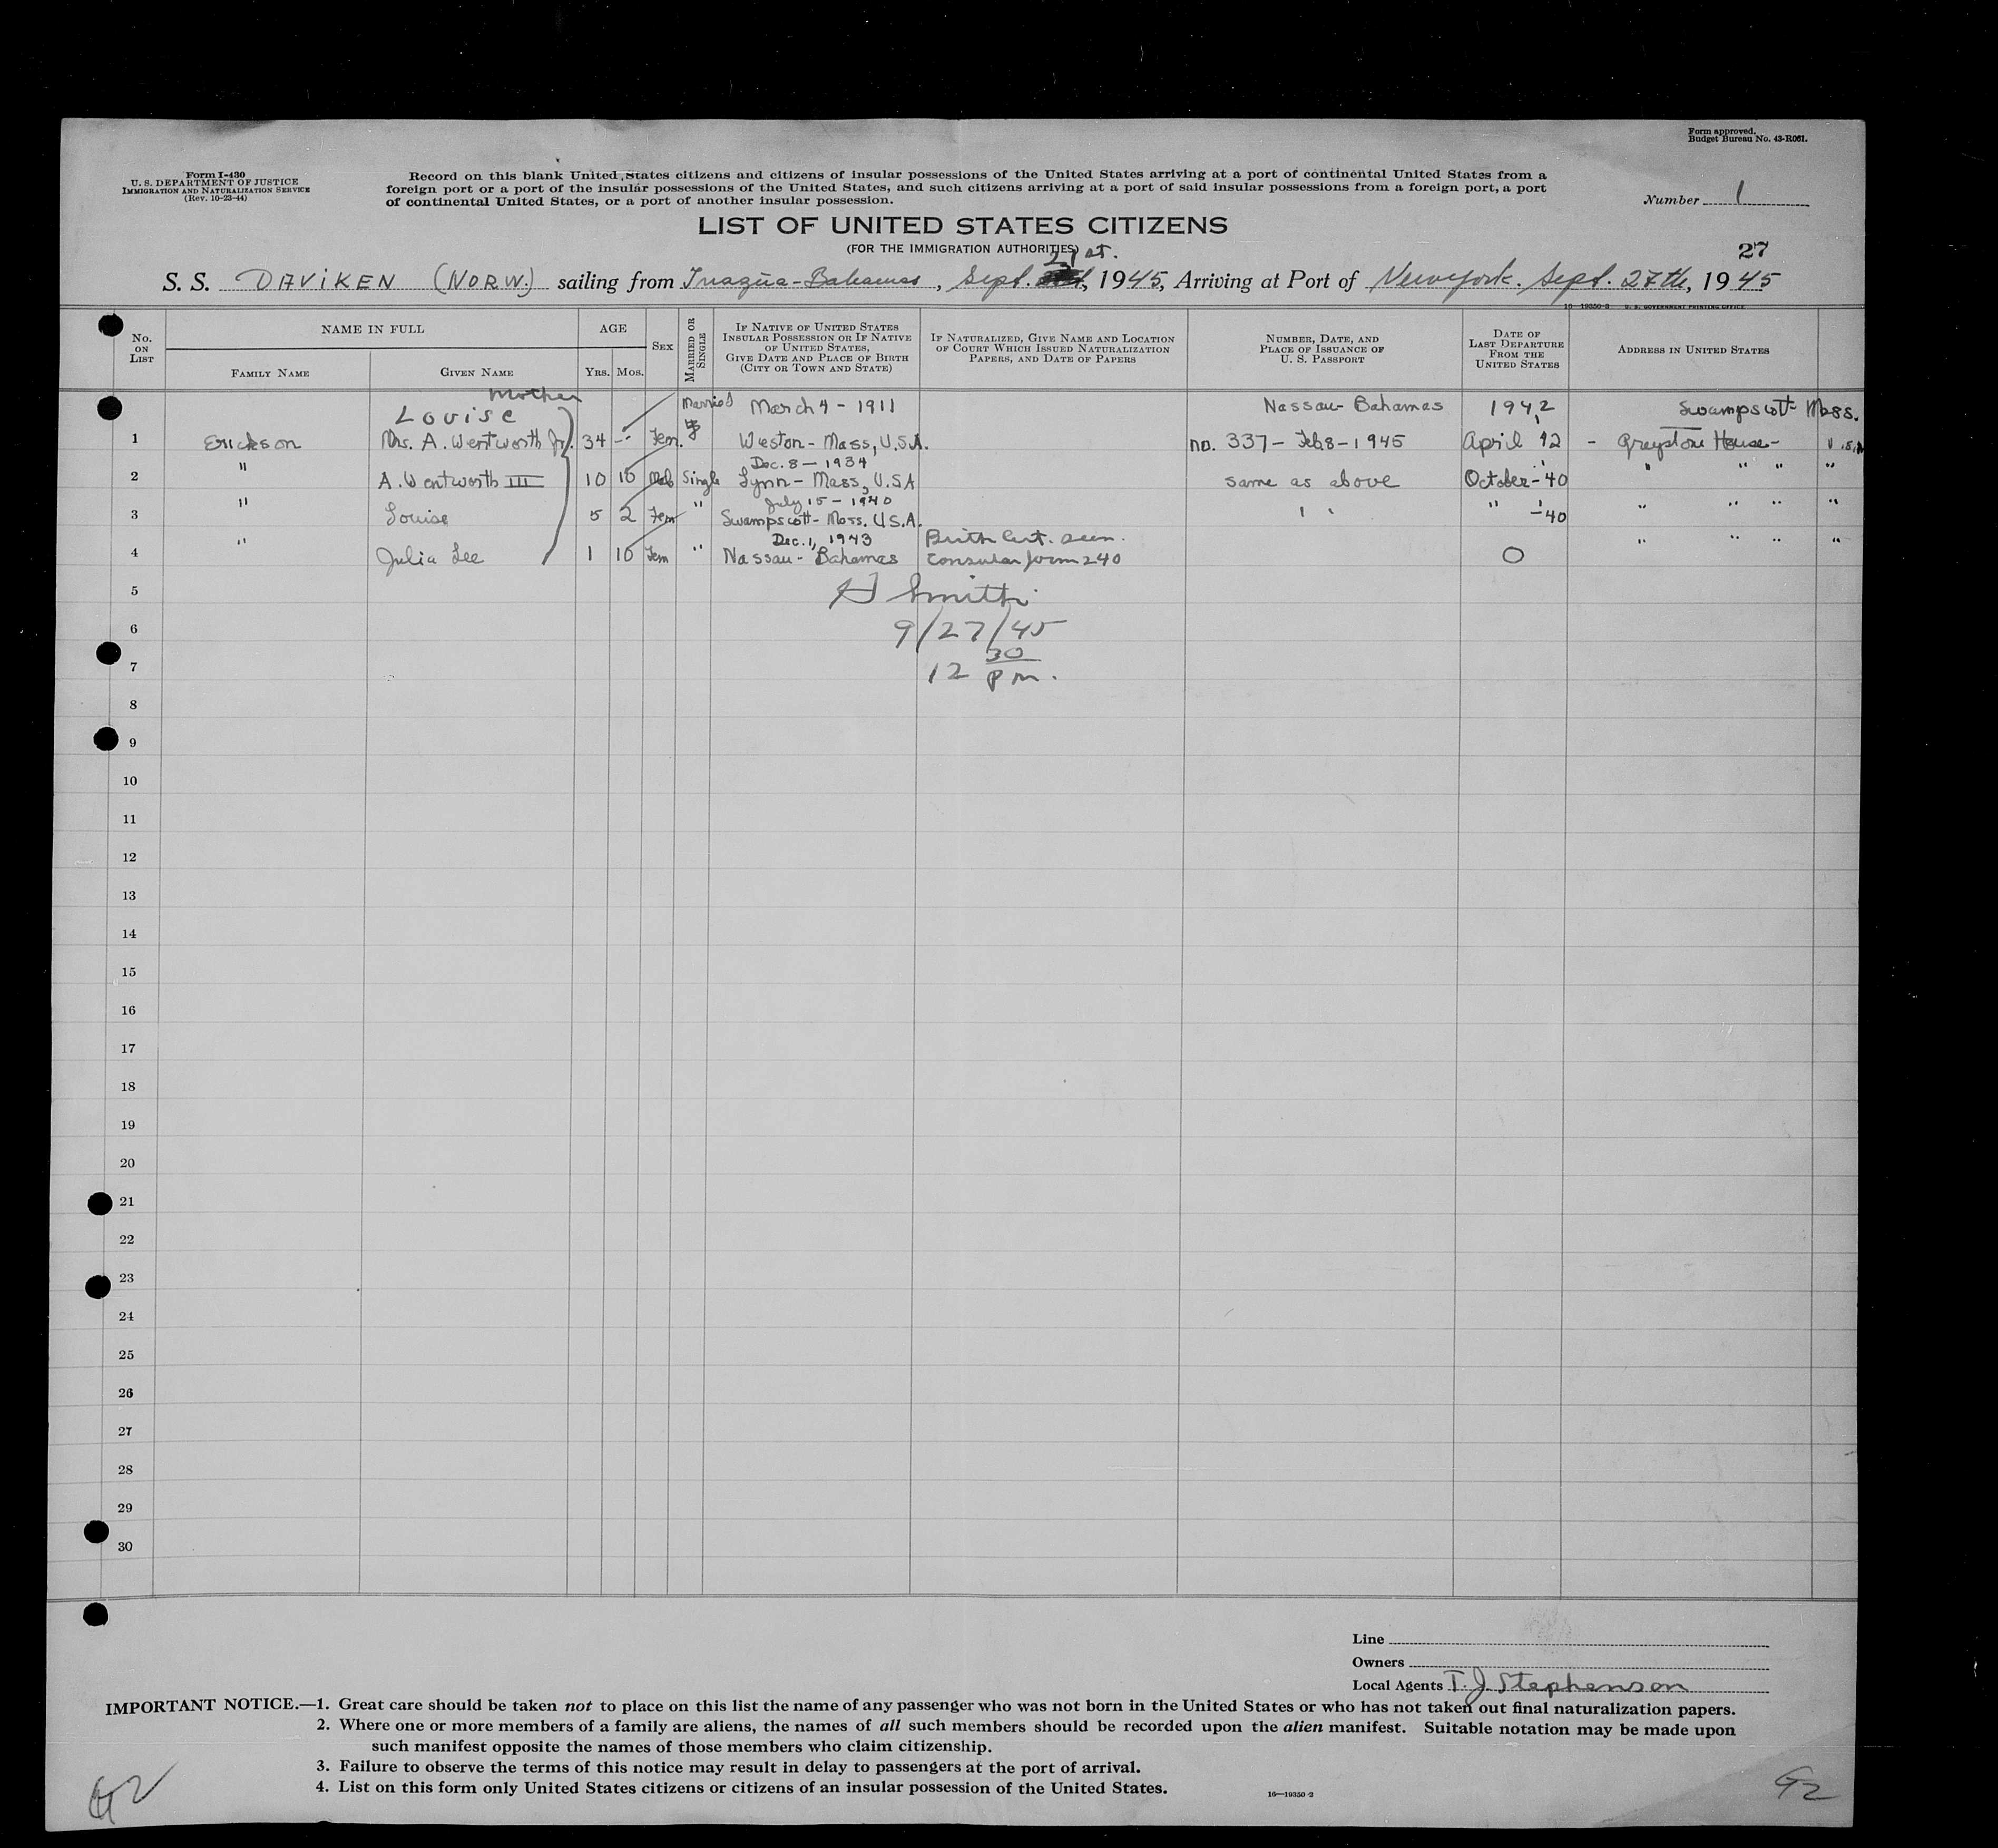 Form approved.
Budget Bureau No. 43-R061.
Form I-430
U. S. DEPARTMENT OF JUSTICE
IMMIGRATION AND NATURALIZATION SERVICE
(Rev. 10-23-44)
Record on this blank United States citizens and citizens of insular possessions of the United States arriving at a port of continental United States from a
foreign port or a port of the insular possessions of the United States, and such citizens arriving at a port of said insular possessions from a foreign port, a port
of continental United States, or a port of another insular possession.
Number 1
LIST OF UNITED STATES CITIZENS
(FOR THE IMMIGRATION AUTHORITIES)
27
S. S. DAVIKEN (NORW.) sailing from Inagua-Bahamas, Sept. 1945, Arriving at Port of New York. Sept. 27th, 1945
16—19350-2 U. S. GOVERNMENT PRINTING OFFICE
No. ON LIST
NAME IN FULL
FAMILY NAME
GIVEN NAME
AGE
YRS. MOS.
SEX
MARRIED OR SINGLE
IF NATIVE OF UNITED STATES
INSULAR POSSESSION OR IF NATIVE
OF UNITED STATES,
GIVE DATE AND PLACE OF BIRTH
(CITY OR TOWN AND STATE)
IF NATURALIZED, GIVE NAME AND LOCATION
OF COURT WHICH ISSUED NATURALIZATION
PAPERS, AND DATE OF PAPERS
NUMBER, DATE, AND
PLACE OF ISSUANCE OF
U. S. PASSPORT
DATE OF
LAST DEPARTURE
FROM THE
UNITED STATES
ADDRESS IN UNITED STATES
Mother
Louise Married March 4 - 1911 Nassau - Bahamas 1942 Swampscott Mass.
1 Erickson Mrs. A. Wentworth Jr. 34 - Fem. Weston - Mass, U.S.A. no. 337 - Feb 8 - 1945 April 12 - Greystone House - U.S.A
Dec. 8 - 1934
2 " A. Wentworth III 10 10 Male Single Lynn - Mass, U.S.A same as above October - '40 " " " "
July 15 - 1940
3 " Louise 5 2 Fem " Swampscott - Mass. U.S.A. " " " - '40 " " " "
Dec. 1, 1943 Birth Cert. seen.
4 " Julia Lee 1 10 Fem " Nassau - Bahamas Consular form 240 O " " " "
5
H Smith
6
9/27/45
7
12 30 pm.
8
9
10
11
12
13
14
15
16
17
18
19
20
21
22
23
24
25
26
27
28
29
30
Line
Owners
Local Agents T. J. Stephenson
IMPORTANT NOTICE.—1. Great care should be taken not to place on this list the name of any passenger who was not born in the United States or who has not taken out final naturalization papers.
2. Where one or more members of a family are aliens, the names of all such members should be recorded upon the alien manifest. Suitable notation may be made upon
such manifest opposite the names of those members who claim citizenship.
3. Failure to observe the terms of this notice may result in delay to passengers at the port of arrival.
4. List on this form only United States citizens or citizens of an insular possession of the United States.
16—19350-2